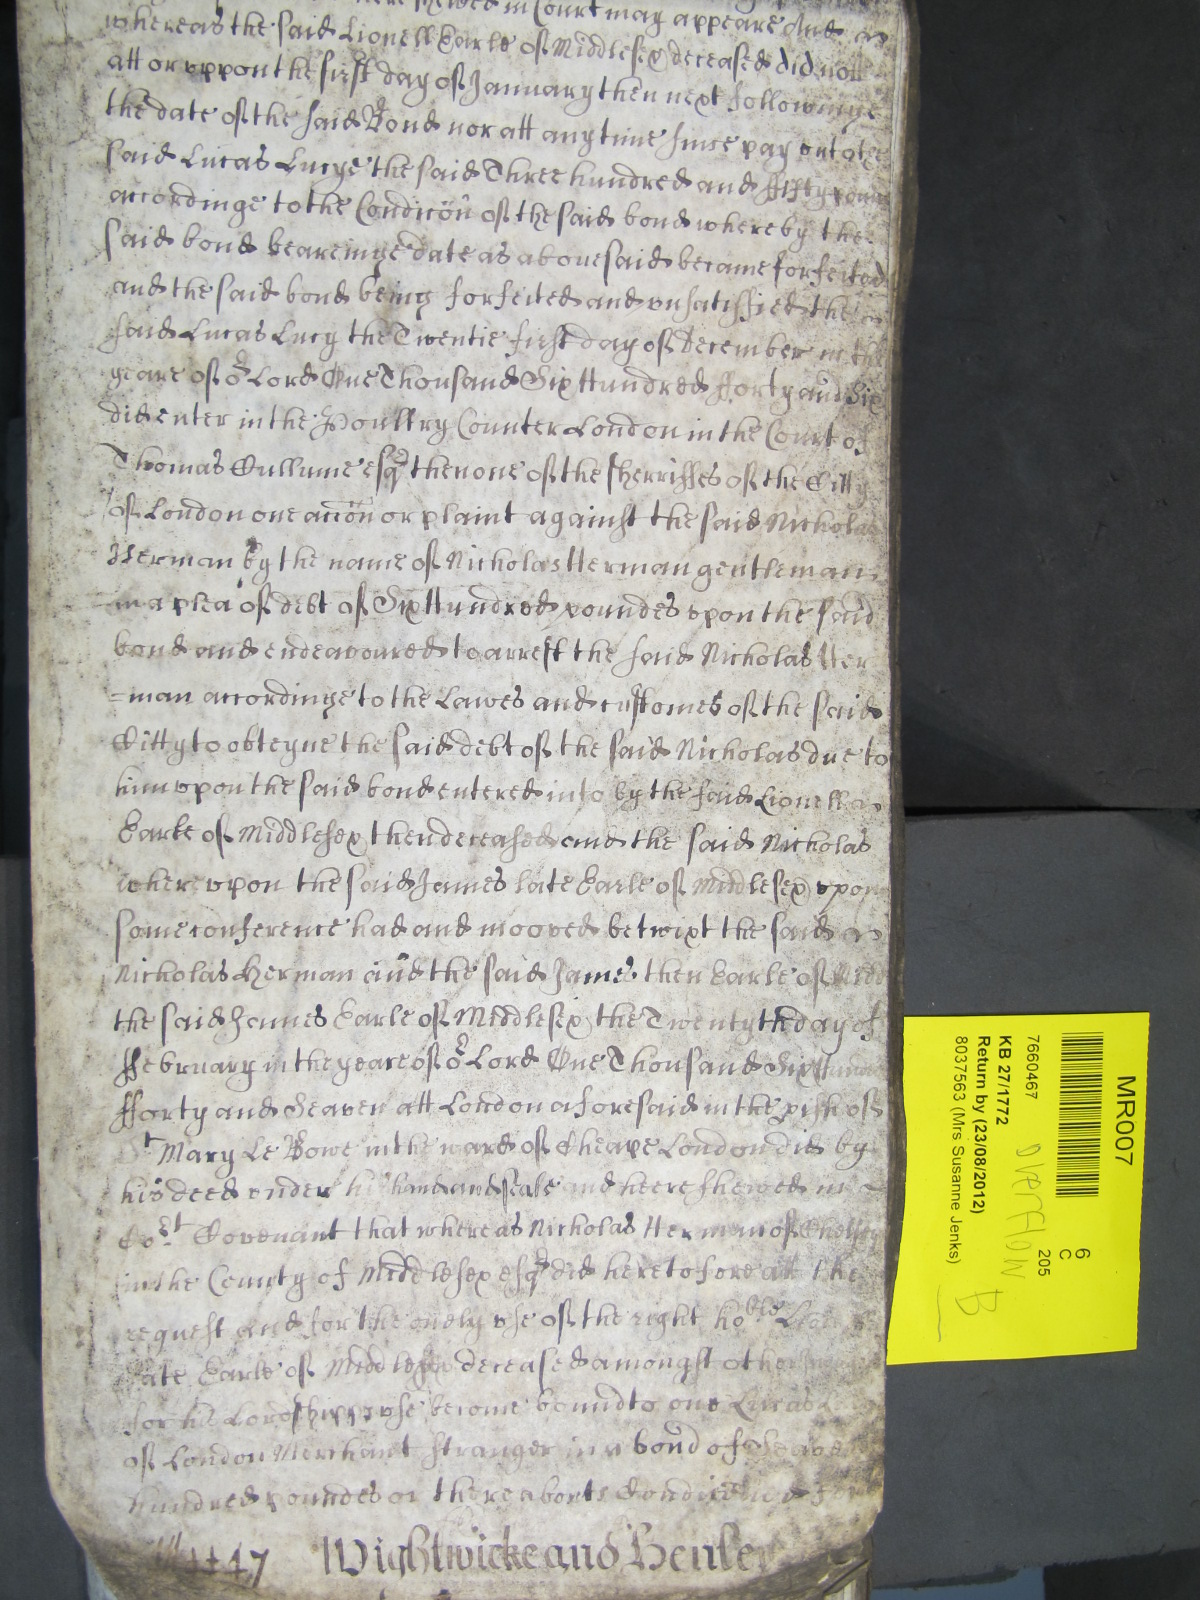 shewed in Court may appeare And
whereas the said Lionell Earle of Middlesex deceased did not
att or uppon the first day of January then next followinge
the date of the said Bond nor att any time since pay
said Lucas Lucye the said Three hundred and ffifty
accordinge to the Condicōn of the said bond whereby the
said bond beareinge date as abovesaid became forfeited
and the said bond being forfeited and unsatisfied the
said Lucas Lucy the Twentie first day of December in the
yeare of oʳ Lord One Thousand Six Hundred fforty and Six
did enter in the Poultry Counter London in the Court of
Thomas Cullume esqʳ then one of the sherriffes of the Citty
of London one accōn or plaint against the said Nicholas
Herman by the name of Nicholas Herman gentleman
in a plea of debt of Six Hundred poundes upon the said
bond and endeavoured to arrest the said Nicholas Her
=man accordinge to the Lawes and customes of the said
Citty to obteyne the said debt of the said Nicholas due to
him upon the said bond entered into by the said Lionell
Earle of Middlesex then deceased and the said Nicholas
wherupon the said James late Earle of Middlesex upon
some conference had and mooved betwixt the said
Nicholas Herman and the said James then Earle of
the said James Earle of Middlesex the Twentyth day of
ffebruary in the yeare of oʳ Lord One Thousand Six
fforty and Seaven att London aforesaid in the pish of
Sᵗ Mary Le Bowe in the ward of Cheape London did by
his deed under his hand and seale and heere shewed in
Coʳᵗ Covenant that whereas Nicholas Herman of
in the County of Middlesex esqʳ did heretofore att the
request and for the onely use of the right hoᵇˡᵉ
late Earle of Middlesex deceased amongst other
for his Lordshipps use become bound to one Lucas
of London Merchant stranger in a bond of Seaven
hundred poundes or thereabouts
1447 Wightwicke and Henley
MR007
6
C
205
7660467
KB 27/1772
Return by (23/08/2012)
8037563 (Mrs Susanne Jenks)
overflow
B